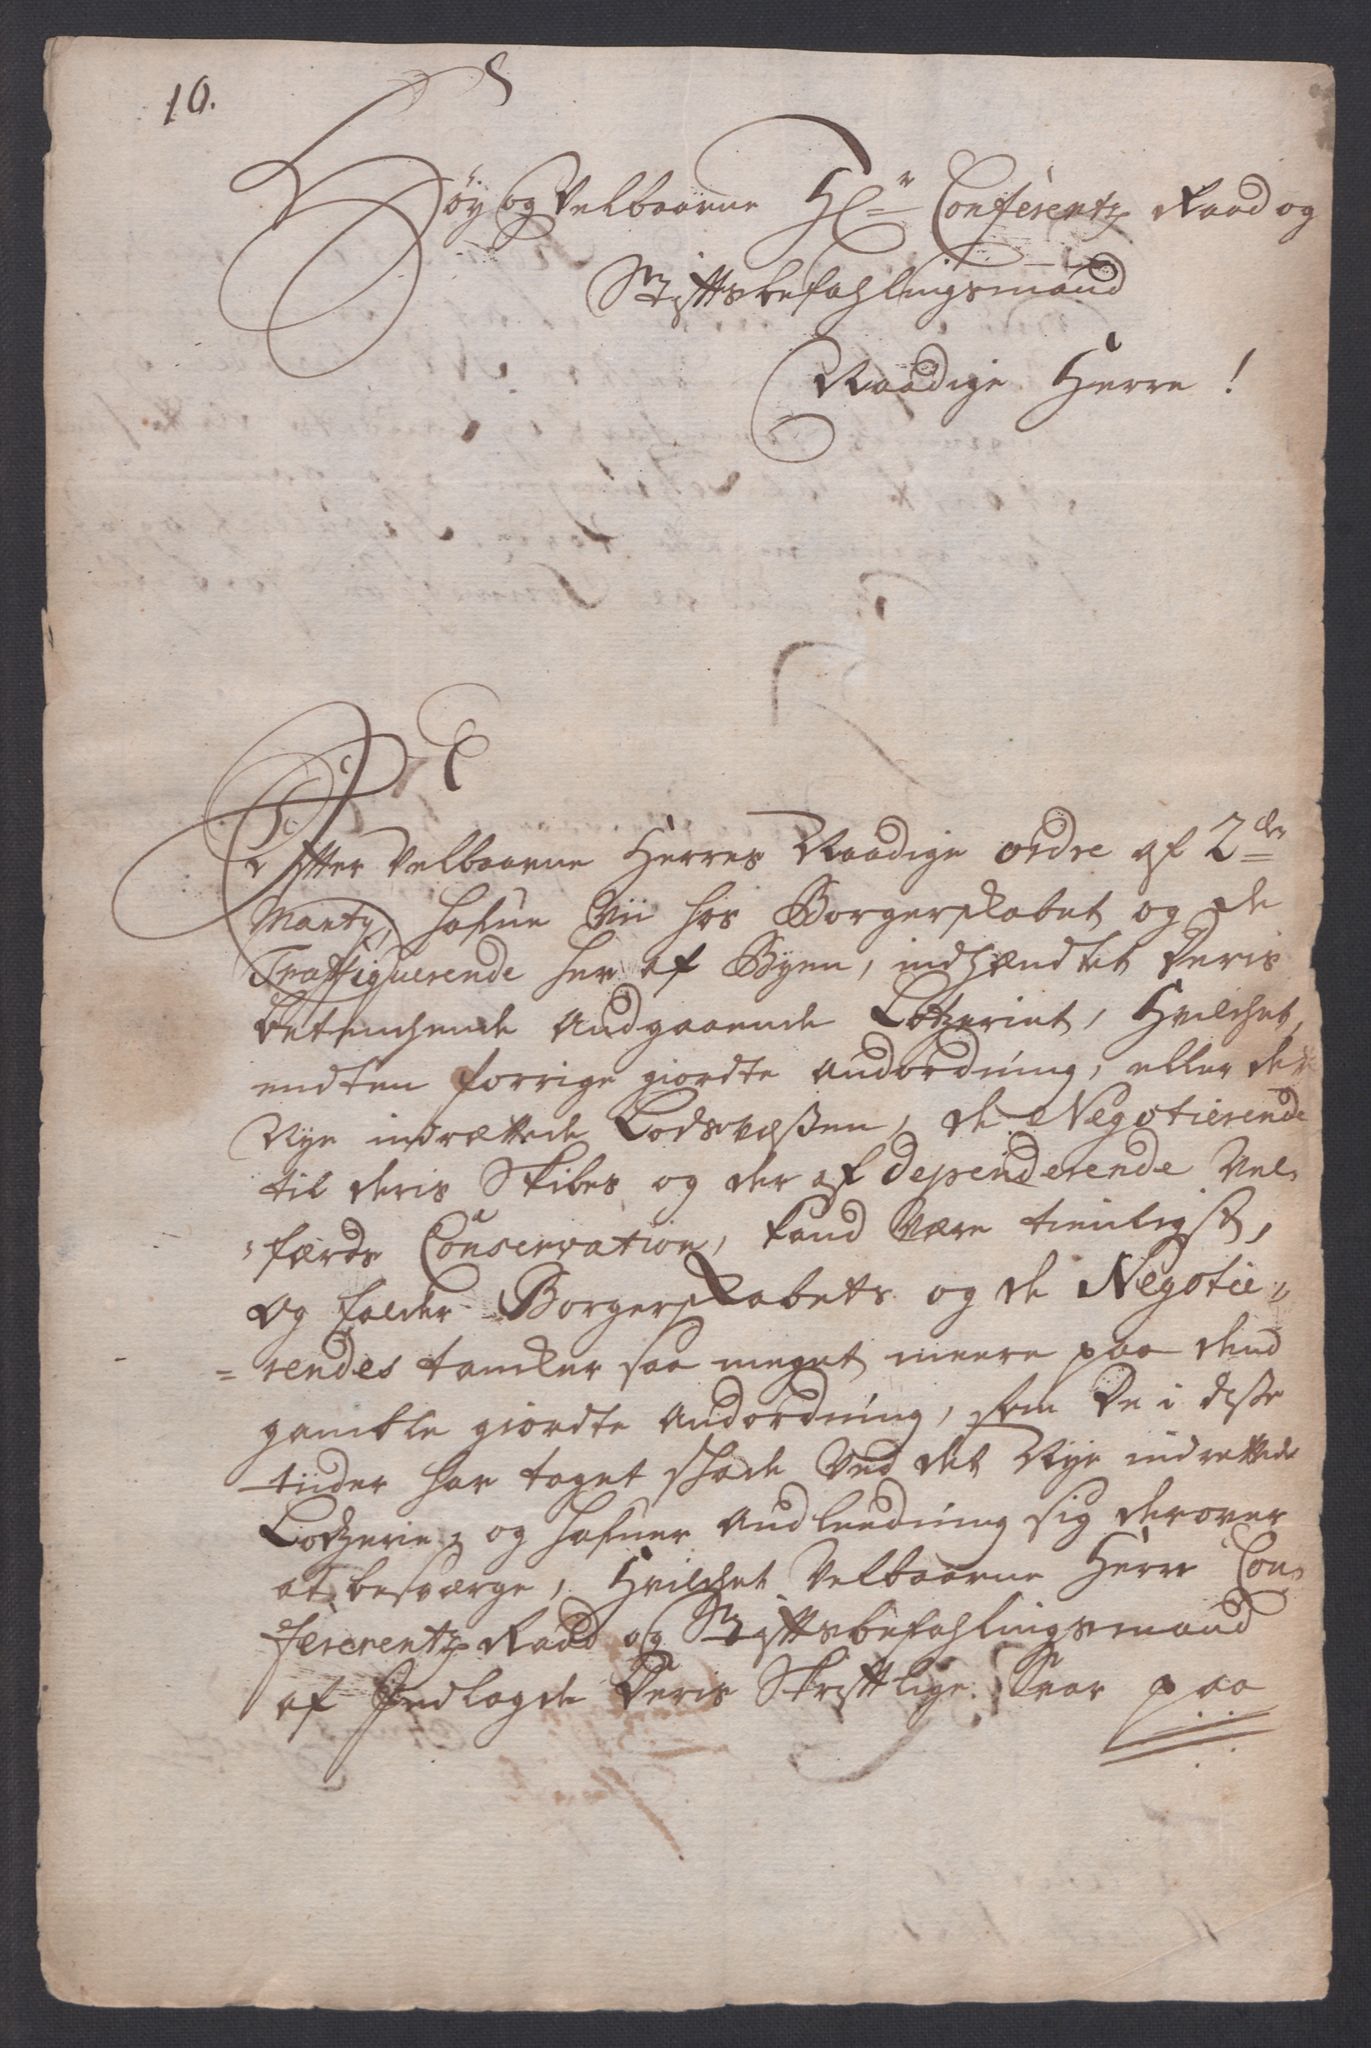 10.
Høy og Velbaarne H&r Conferentz Raad og
Stiftsbefahlingsmand
Naadige Herre!
Efter Velbaarne Herres Naadige ordre af 2den
Marty, hafue Vii hos Borgerskabet og de
Traffiquerende her af Byen, indhændtet Deris
betenchende Andgaaende Lotzeriet, Hvilchet,
endten forrige giordte Andordning, eller det
Nye indrættede Lodsvæßen, de Negotierende
til deris Skibes og der af dependerende Vel-
færds Conservation, kand være tienligst,
Og falder Borgerskabets og de Negotie-
rendes tancker saa meget meere paa dend
gamble giordte Andordning, som De i disse
tiider har taget skade ved det Nye indrettede
Lotzerie, og hafuer Andleedning sig derover
at besværge, Hvilchet Velbaarne Herr Con-
fererentz Raad og Stiftsbefahlingsmand
af Indlagde Deris Skriftlige Svar paa